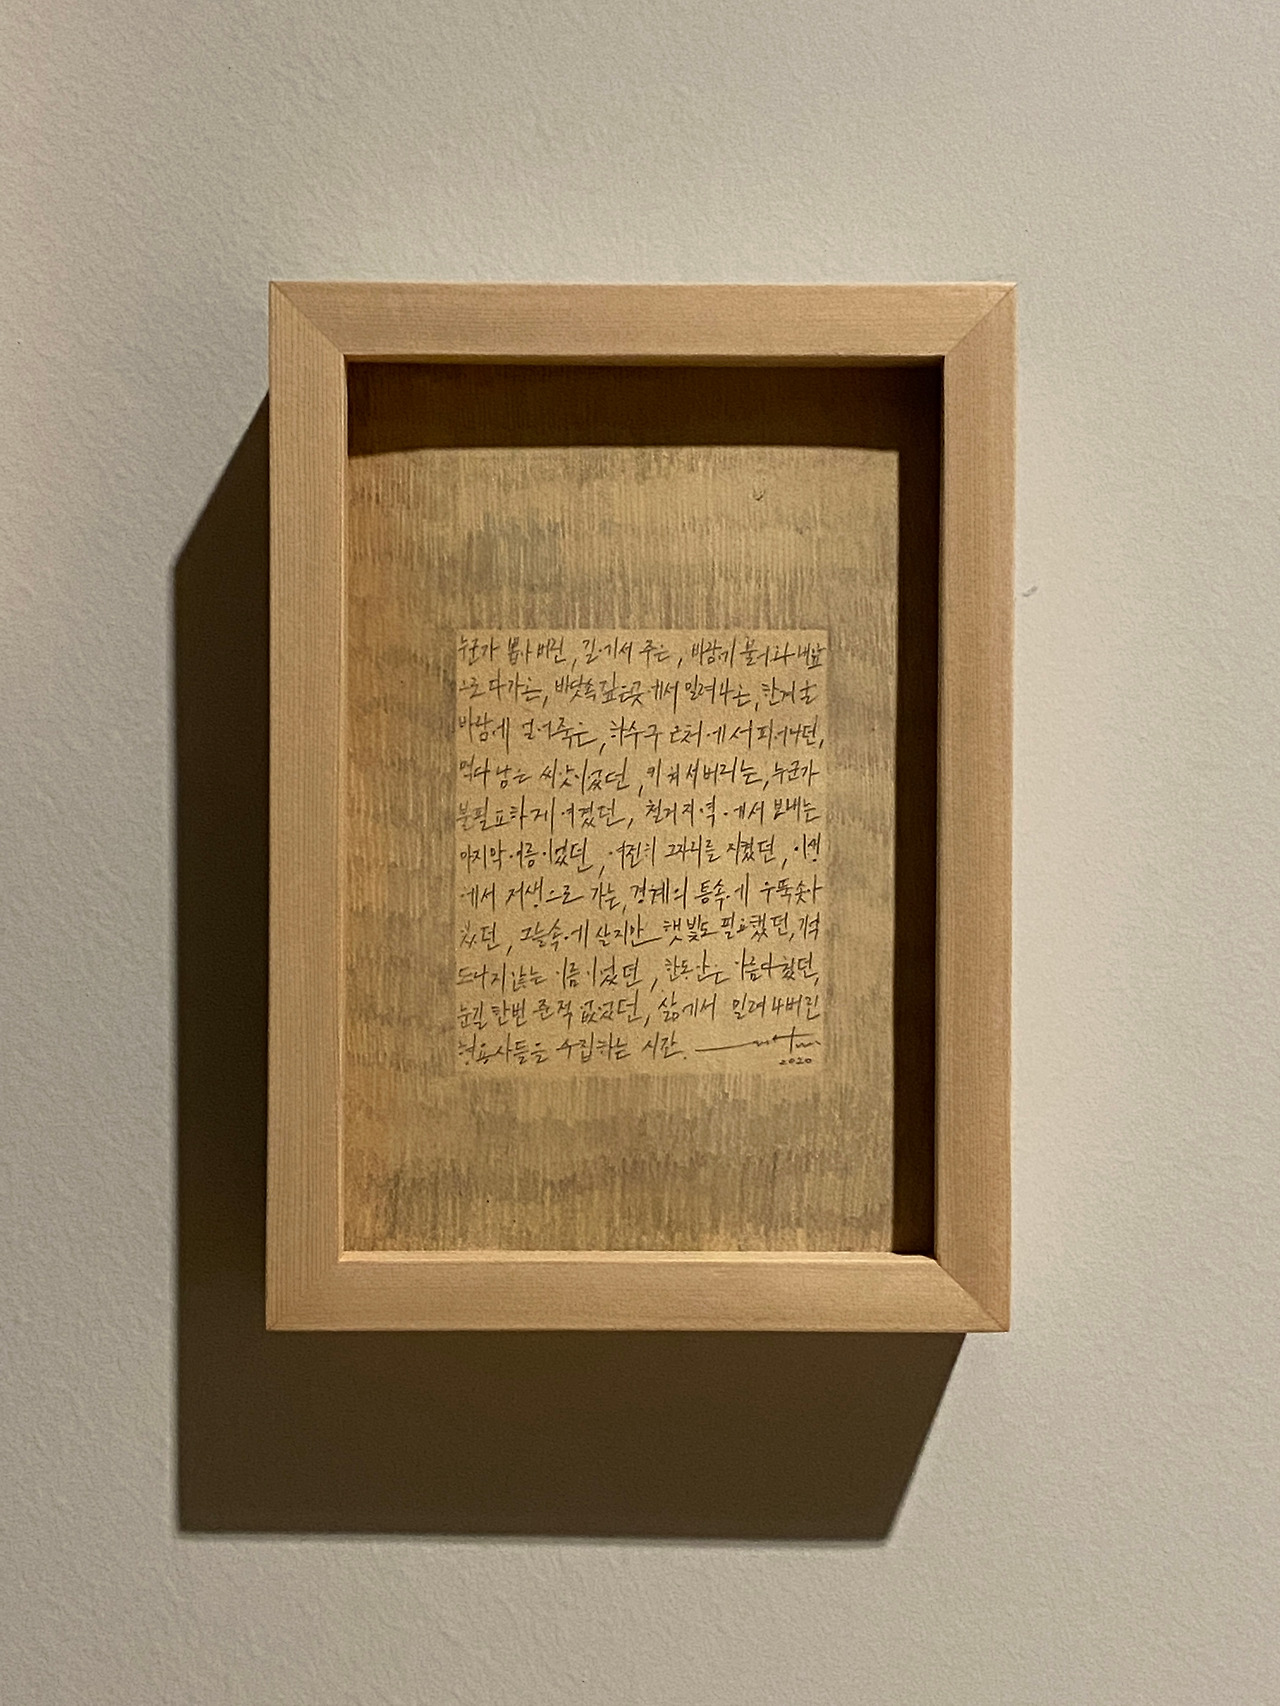 누군가 뽑아버린, 길에서 주운, 바람에 불어와 내앞
으로 다가온, 바닷속 깊은곳에서 밀려나온, 한겨울
바람에 얼어죽은, 하수구 근처에서 피어나던,
먹다 남은 씨앗이었던, 키워서버리는, 누군가
불필요하게 여겼던, 철거지역에서 보내는
마지막 여름이었던, 여전히 그자리를 지켰던, 이생
에서 저생으로 가는, 경계의 틈속에 우뚝솟아
있던, 그늘속에 살지만 햇빛도 필요했던, 기억
도나지않는 이름이었던, 한동안은 아름다웠던,
눈길 한번 준적 없었던, 삶에서 밀려나버린
형용사들을 수집하는 시간.
2020